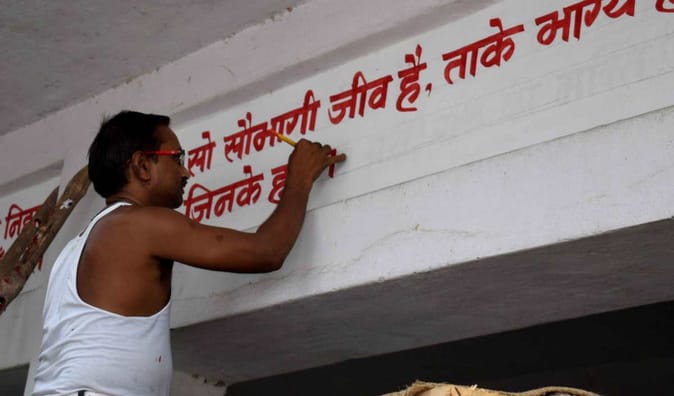 सो सौभागी जीव है, ताके भाग्य
जिनके